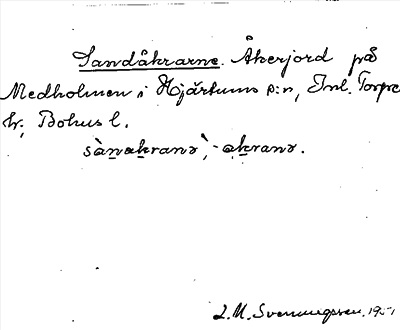 Sandåkrarne. Åkerjord på
Medholmen i Hjärtums s:n, Inl. Torpe
hr, Bohus l.
sànakranə̀, -akranə.
L. M. Svenungsson. 1951